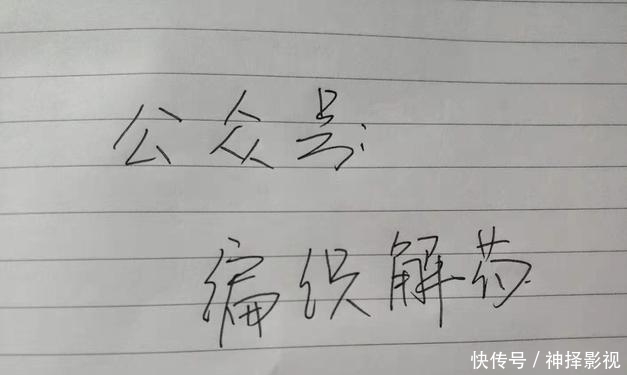 公众号:
编织解药
快传号/神择影视